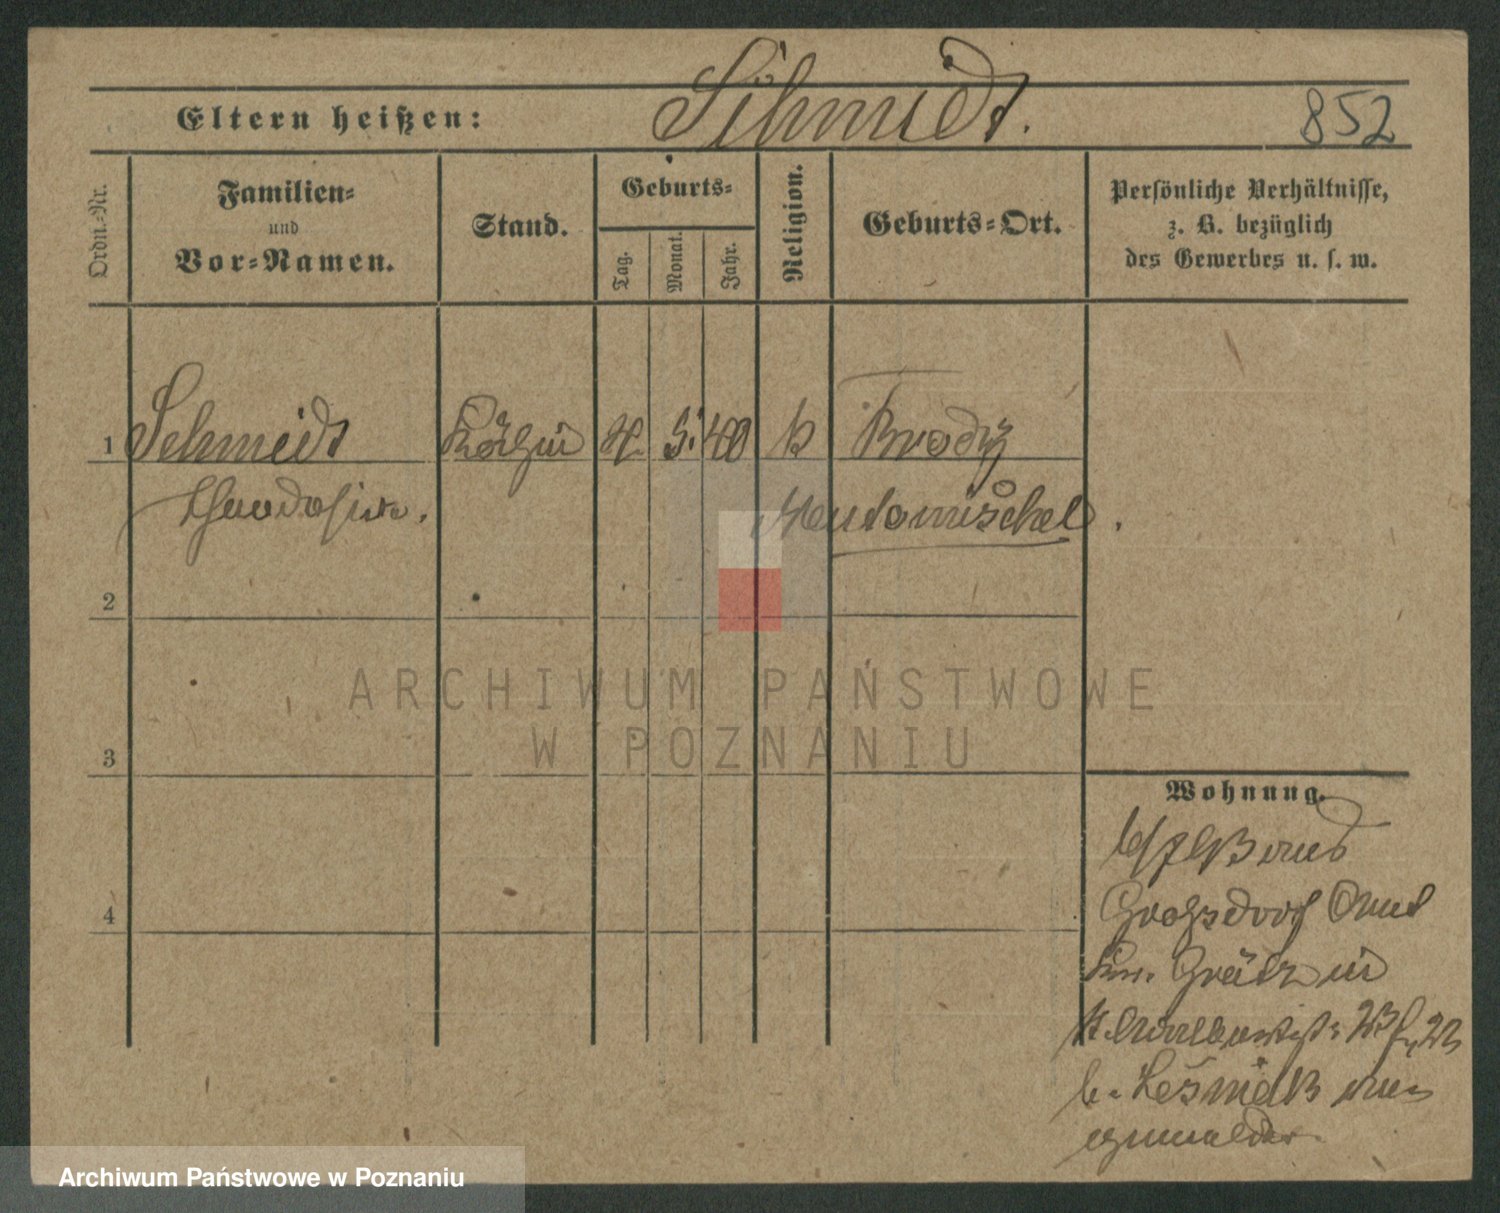 Schmidt.
852
Eltern heißen:
Ordn.-Nr.
Familien-
und
Vor-Namen.
Stand.
Geburts-
Tag.
Monat.
Jahr.
Religion.
Geburts-Ort.
Persönliche Verhältnisse,
z. B. bezüglich
des Gewerbes u. s. w.
1 Schmidt Köchin 4. 5. 40 k Brody
Theodosia. Neutomischel.
2
3
4
Wohnung.
Großdorf
Grätz in
23
ARCHIWUM PAŃSTWOWE
W POZNANIU
Archiwum Państwowe w Poznaniu